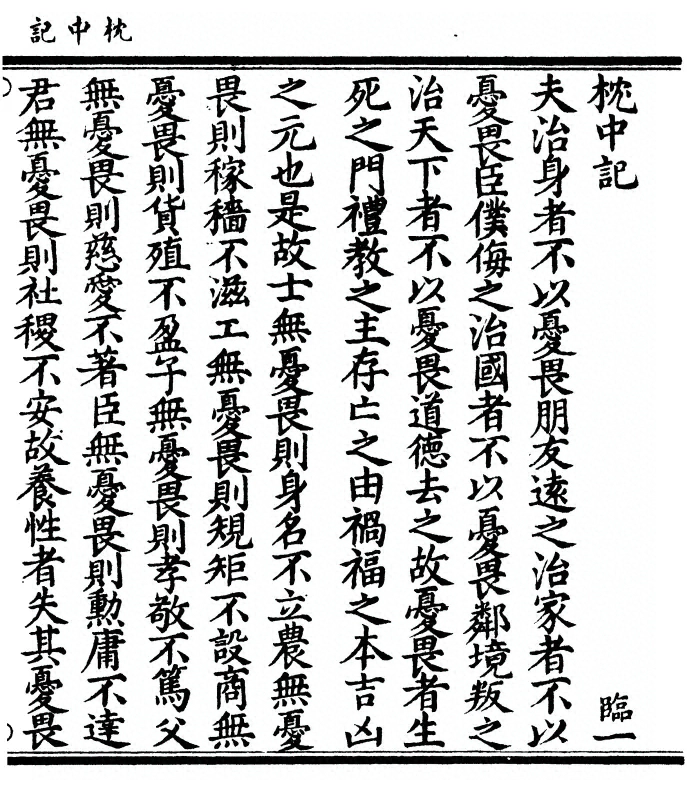 枕中記
枕中記 臨一
夫治身者不以憂畏朋友遠之治家者不以
憂畏臣僕侮之治國者不以憂畏鄰境叛之
治天下者不以憂畏道德去之故憂畏者生
死之門禮教之主存亡之由禍福之本吉凶
之元也是故士無憂畏則身名不立農無憂
畏則稼穡不滋工無憂畏則規矩不設商無
憂畏則貨殖不盈子無憂畏則孝敬不篤父
無憂畏則慈愛不著臣無憂畏則勳庸不達
君無憂畏則社稷不安故養性者失其憂畏